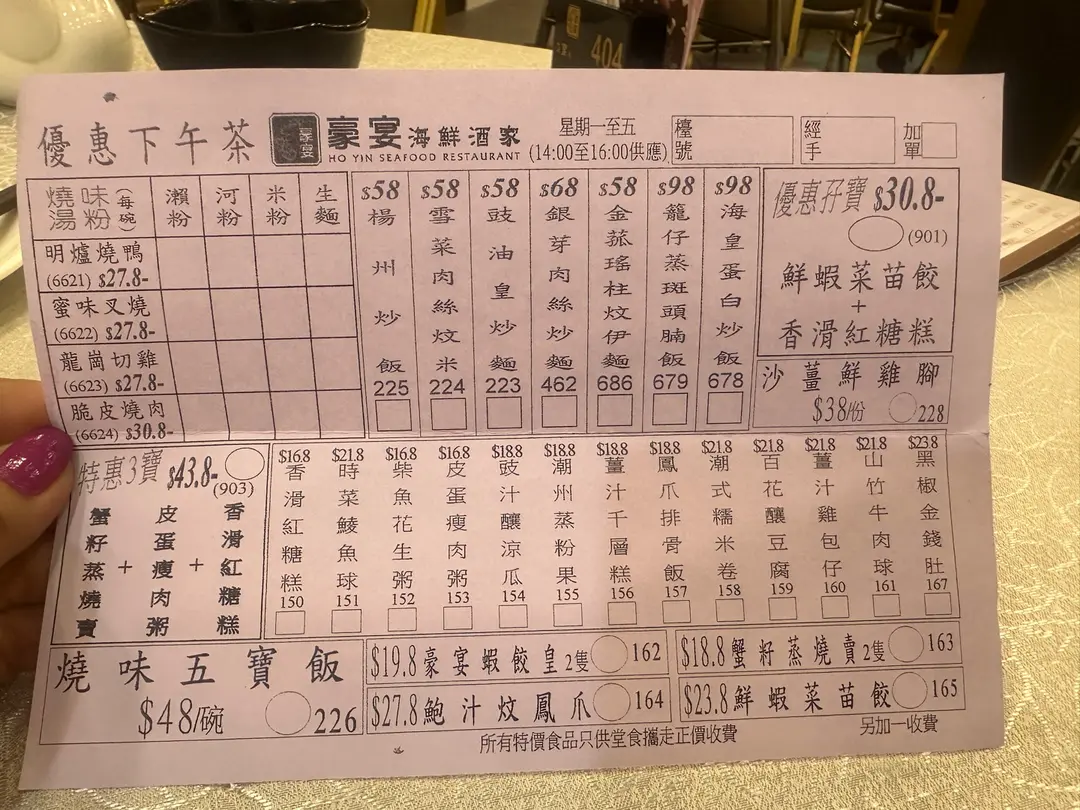 404
優惠下午茶
豪宴
豪宴海鮮酒家
HO YIN SEAFOOD RESTAURANT
星期一至五
(14:00至16:00供應)
檯號
經手
加單
燒味湯粉(每碗)
瀨粉
河粉
米粉
生麵
明爐燒鴨
(6621) $27.8-
蜜味叉燒
(6622) $27.8-
龍崗切雞
(6623) $27.8-
脆皮燒肉
(6624) $30.8-
$58 楊州炒飯 225
$58 雪菜肉絲炆米 224
$58 豉油皇炒麵 223
$68 銀芽肉絲炒麵 462
$58 金菰瑤柱炆伊麵 686
$98 籠仔蒸斑頭腩飯 679
$98 海皇蛋白炒飯 678
優惠孖寶 $30.8-
(901)
鮮蝦菜苗餃
+
香滑紅糖糕
沙薑鮮雞腳
$38/份 228
特惠3寶 $43.8-
(903)
蟹籽蒸燒賣
+
皮蛋瘦肉粥
+
香滑紅糖糕
$16.8 香滑紅糖糕 150
$21.8 時菜鯪魚球 151
$16.8 柴魚花生粥 152
$16.8 皮蛋瘦肉粥 153
$18.8 豉汁釀涼瓜 154
$18.8 潮州蒸粉果 155
$18.8 薑汁千層糕 156
$18.8 鳳爪排骨飯 157
$21.8 潮式糯米卷 158
$21.8 百花釀豆腐 159
$21.8 薑汁雞包仔 160
$21.8 山竹牛肉球 161
$23.8 黑椒金錢肚 167
燒味五寶飯
$48/碗 226
$19.8 豪宴蝦餃皇2隻 162
$18.8 蟹籽蒸燒賣2隻 163
$27.8 鮑汁炆鳳爪 164
$23.8 鮮蝦菜苗餃 165
所有特價食品只供堂食攜走正價收費
另加一收費